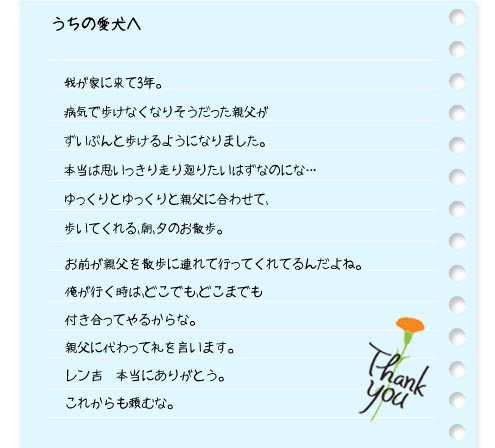 うちの愛犬へ
我が家に来て3年。
病気で歩けなくなりそうだった親父が
ずいぶんと歩けるようになりました。
本当は思いっきり走り廻りたいはずなのにな…
ゆっくりとゆっくりと親父に合わせて、
歩いてくれる、朝、夕のお散歩。
お前が親父を散歩に連れて行ってくれてるんだよね。
俺が行く時は、どこでも、どこまでも
付き合ってやるからな。
親父に代わって礼を言います。
レン吉　本当にありがとう。
これからも頼むな。
Thank
you